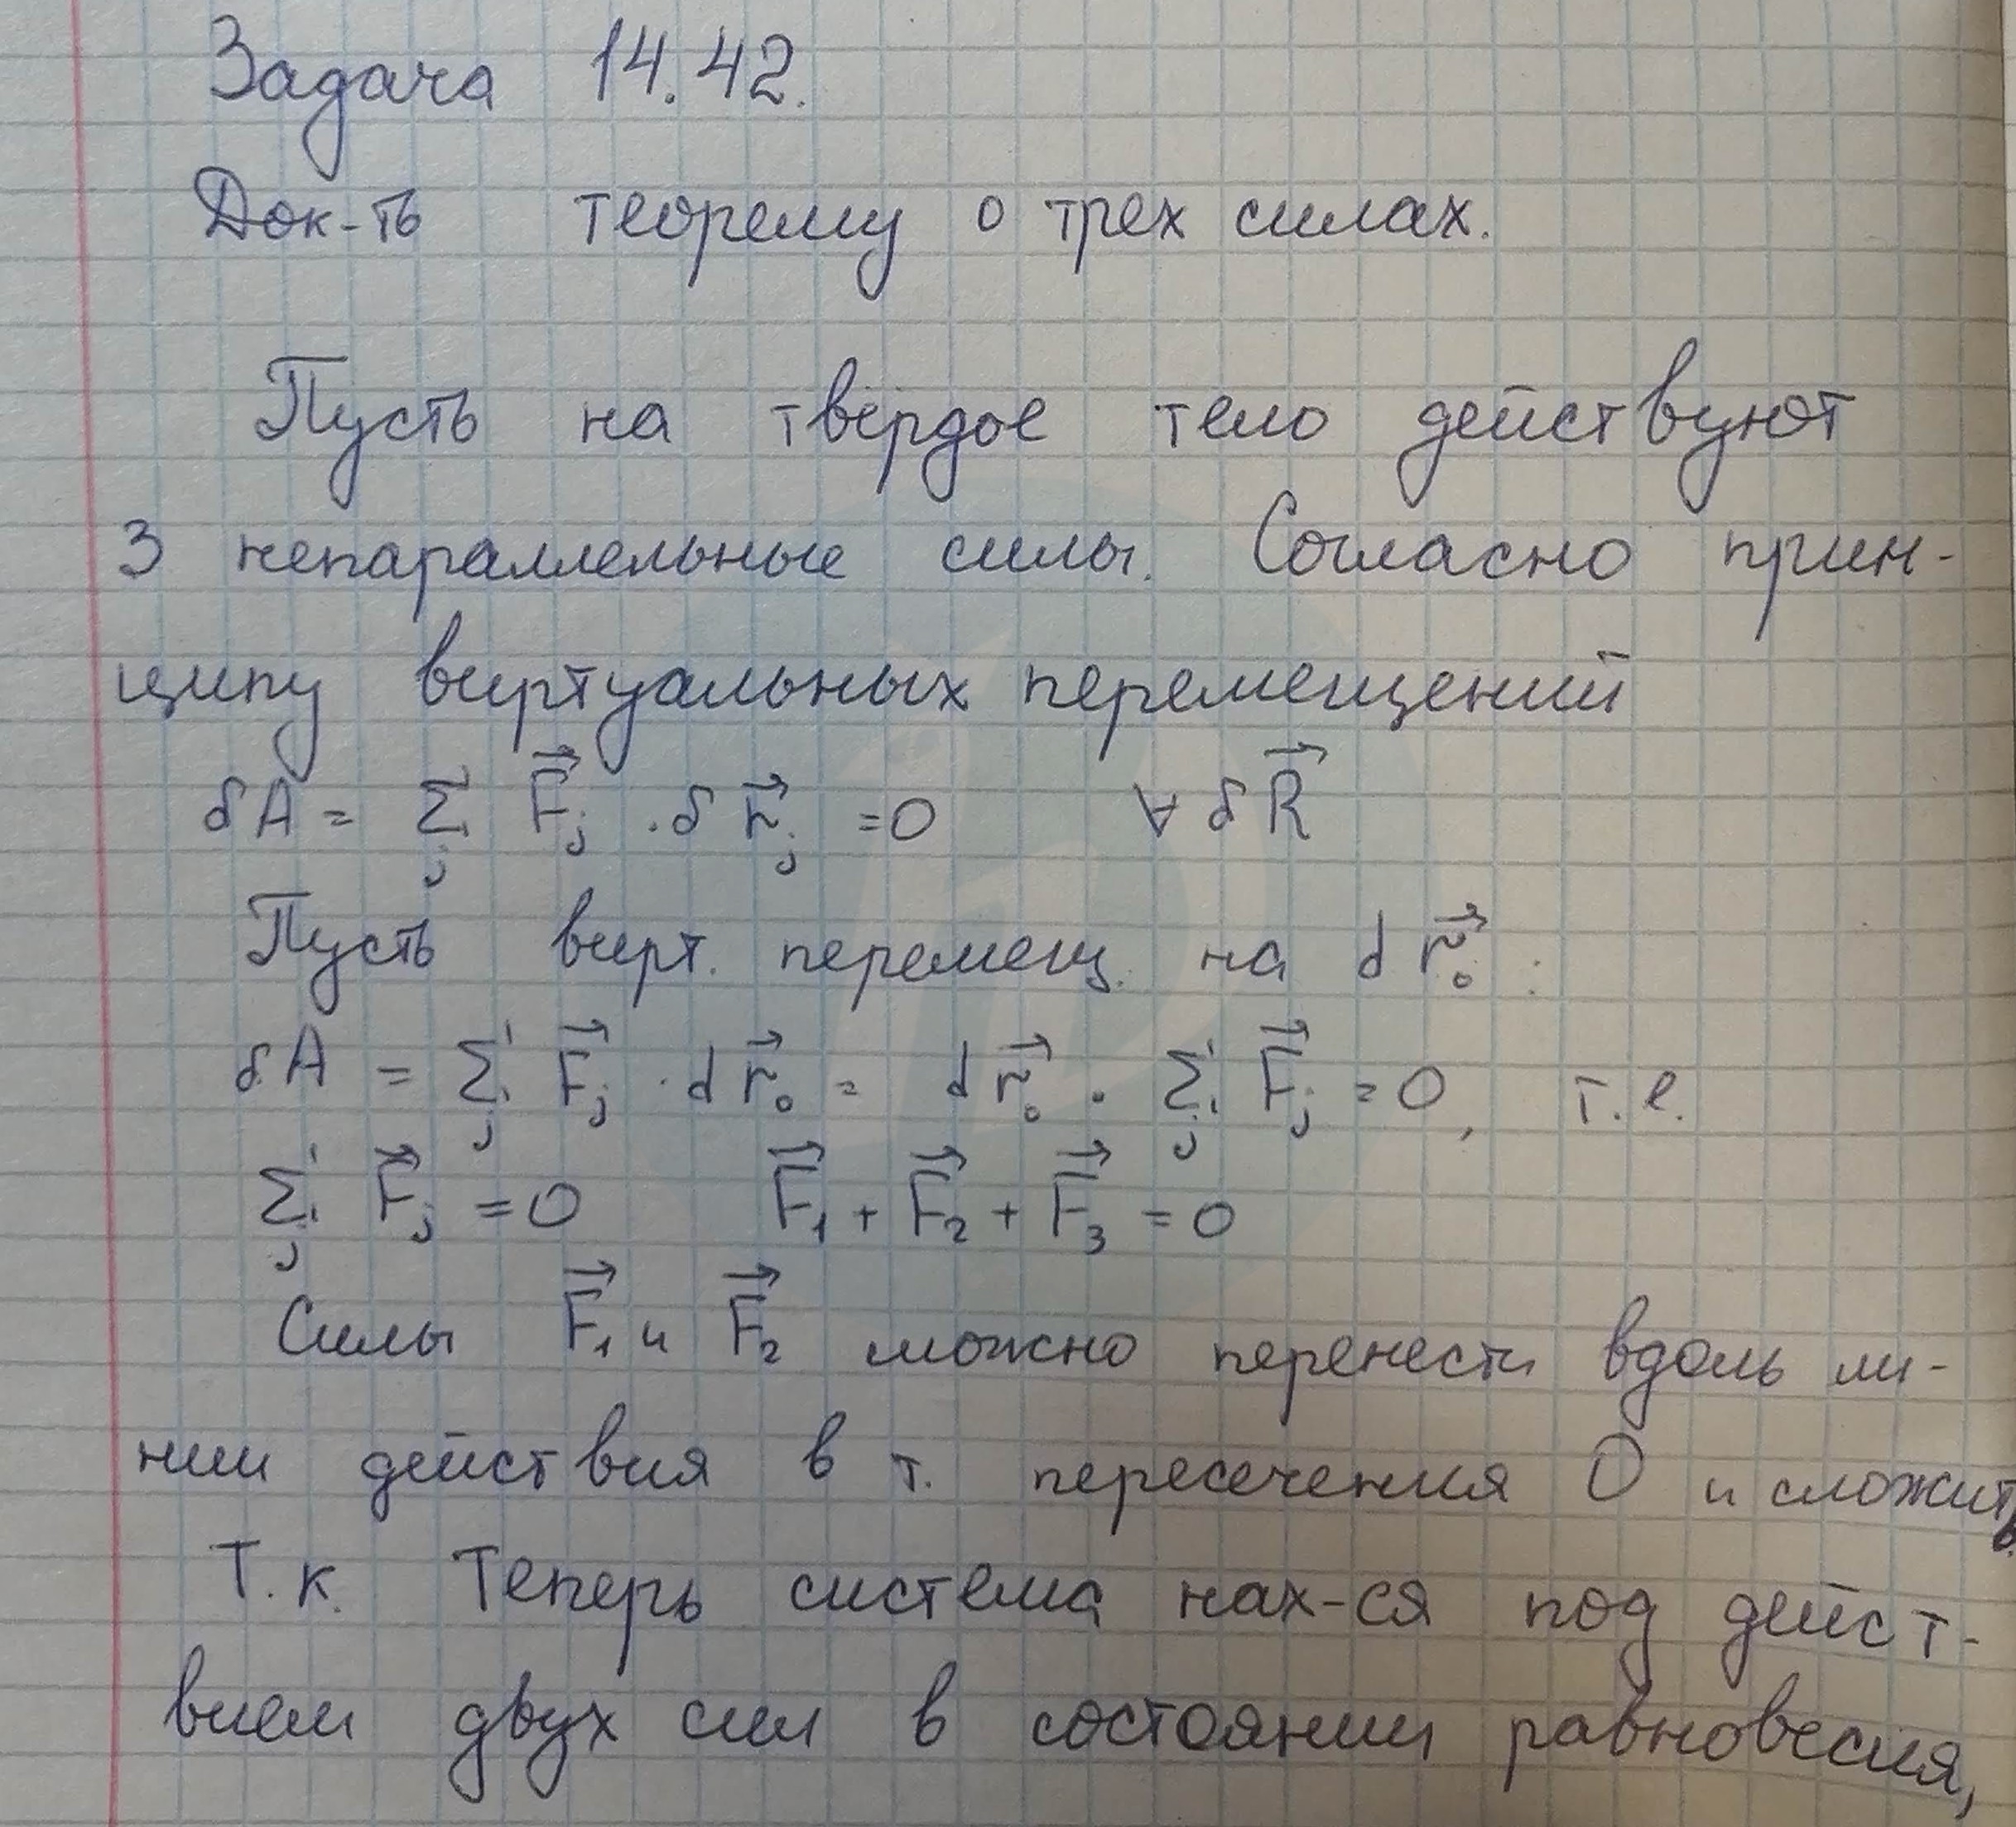 Задача 14.42.
Док-ть теорему о трех силах.
Пусть на твердое тело действуют
3 непараллельные силы. Согласно прин-
ципу виртуальных перемещений
δA = Σ_j F⃗_j · δr⃗_j = 0 ∀ δR⃗
Пусть вирт. перемещ. на dr⃗₀ :
δA = Σ_j F⃗_j · dr⃗₀ = dr⃗₀ · Σ_j F⃗_j = 0, т.е.
Σ_j F⃗_j = 0 F⃗₁ + F⃗₂ + F⃗₃ = 0
Силы F⃗₁ и F⃗₂ можно перенести вдоль ли-
нии действия в т. пересечения O и сложить.
Т.к. Теперь система нах-ся под дейст-
вием двух сил в состоянии равновесия,